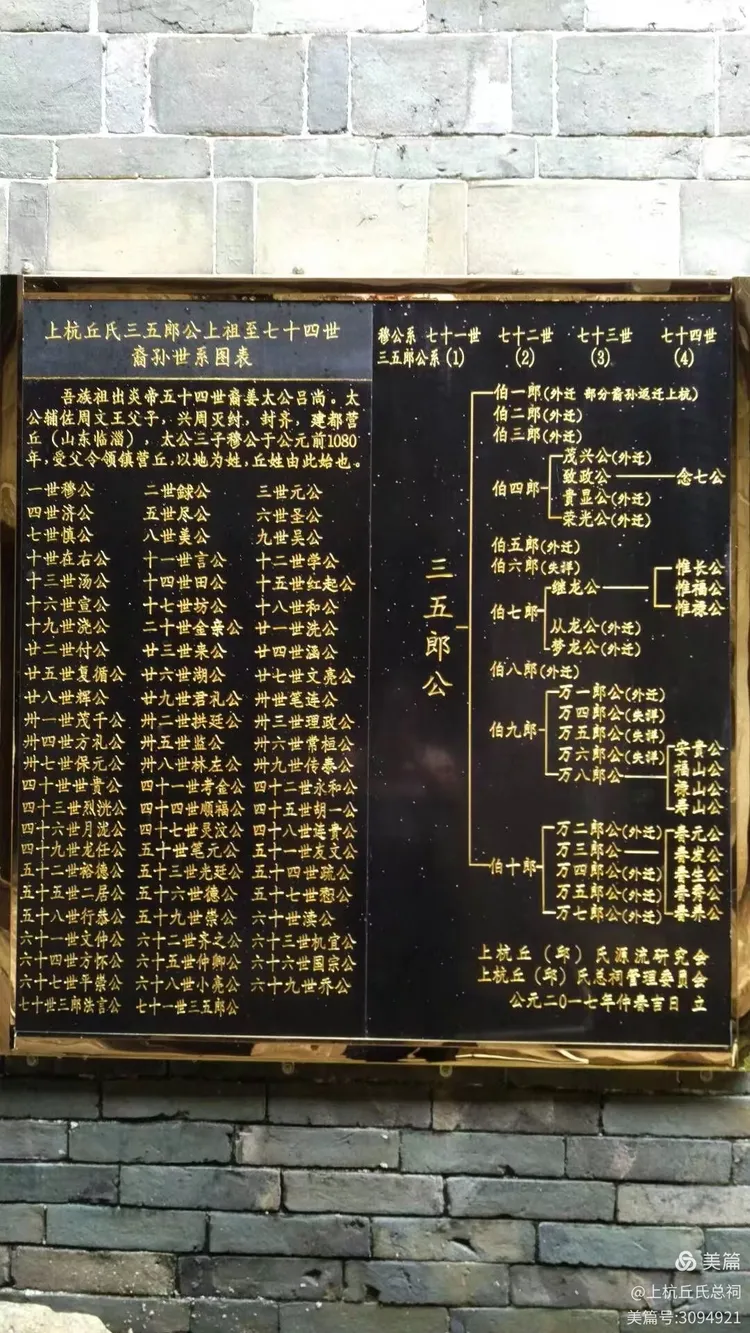 上杭丘氏三五郎公上祖至七十四世
裔孙世系图表
吾族祖出炎帝五十四世裔姜太公吕尚。太
公辅佐周文王父子，兴周灭纣，封齐，建都营
丘（山东临淄），太公三子穆公于公元前1080
年，受父令领镇营丘，以地为姓，丘姓由此始也。
一世穆公 二世銶公 三世元公
四世济公 五世尽公 六世圣公
七世慎公 八世美公 九世吴公
十世在右公 十一世言公 十二世学公
十三世汤公 十四世田公 十五世红起公
十六世宣公 十七世坊公 十八世和公
十九世浇公 二十世金亲公 廿一世洗公
廿二世付公 廿三世来公 廿四世涵公
廿五世复循公 廿六世湖公 廿七世文亮公
廿八世辉公 廿九世君礼公 卅世笔连公
卅一世茂千公 卅二世拱廷公 卅三世理政公
卅四世方礼公 卅五世监公 卅六世常桓公
卅七世保元公 卅八世林左公 卅九世传泰公
四十世世贵公 四十一世考金公 四十二世永和公
四十三世烈洸公 四十四世顺福公 四十五世胡一公
四十六世月沈公 四十七世灵汶公 四十八世连贵公
四十九世龙任公 五十世笔元公 五十一世友文公
五十二世裕德公 五十三世光延公 五十四世疏公
五十五世二居公 五十六世德公 五十七世愿公
五十八世行恭公 五十九世崇公 六十世渎公
六十一世文仲公 六十二世齐之公 六十三世机宜公
六十四世方怀公 六十五世仲卿公 六十六世国宗公
六十七世平崇公 六十八世小亮公 六十九世乔公
七十世三郎法言公 七十一世三五郎公
穆公系 七十一世 七十二世 七十三世 七十四世
三五郎公系(1) (2) (3) (4)
三五郎公
伯一郎(外迁 部分裔孙返迁上杭)
伯二郎(外迁)
伯三郎(外迁)
伯四郎
茂兴公(外迁)
致政公 念七公
贵显公(外迁)
荣光公(外迁)
伯五郎(外迁)
伯六郎(失详)
伯七郎
继龙公
惟长公
惟福公
惟禄公
从龙公(外迁)
梦龙公(外迁)
伯八郎(外迁)
伯九郎
万一郎公(外迁)
万四郎公(失详)
万五郎公(失详)
万六郎公(失详)
万八郎公
安贵公
福山公
禄山公
寿山公
伯十郎
万二郎公(外迁)
万三郎公
万四郎公(外迁)
万五郎公(外迁)
万七郎公(外迁)
春元公
春发公
春生公
春秀公
春养公
上杭丘（邱）氏源流研究会
上杭丘（邱）氏总祠管理委员会
公元二〇一七年仲春吉日 立
美篇
@上杭丘氏总祠
美篇号:3094921